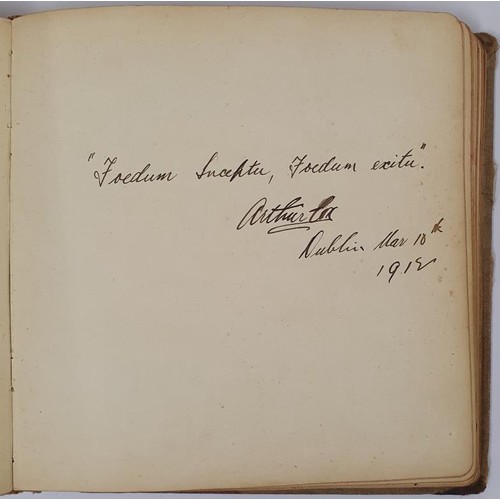 "Foedum Inceptu, Foedum exitu".
Arthur Cox
Dublin Mar 18th
1918